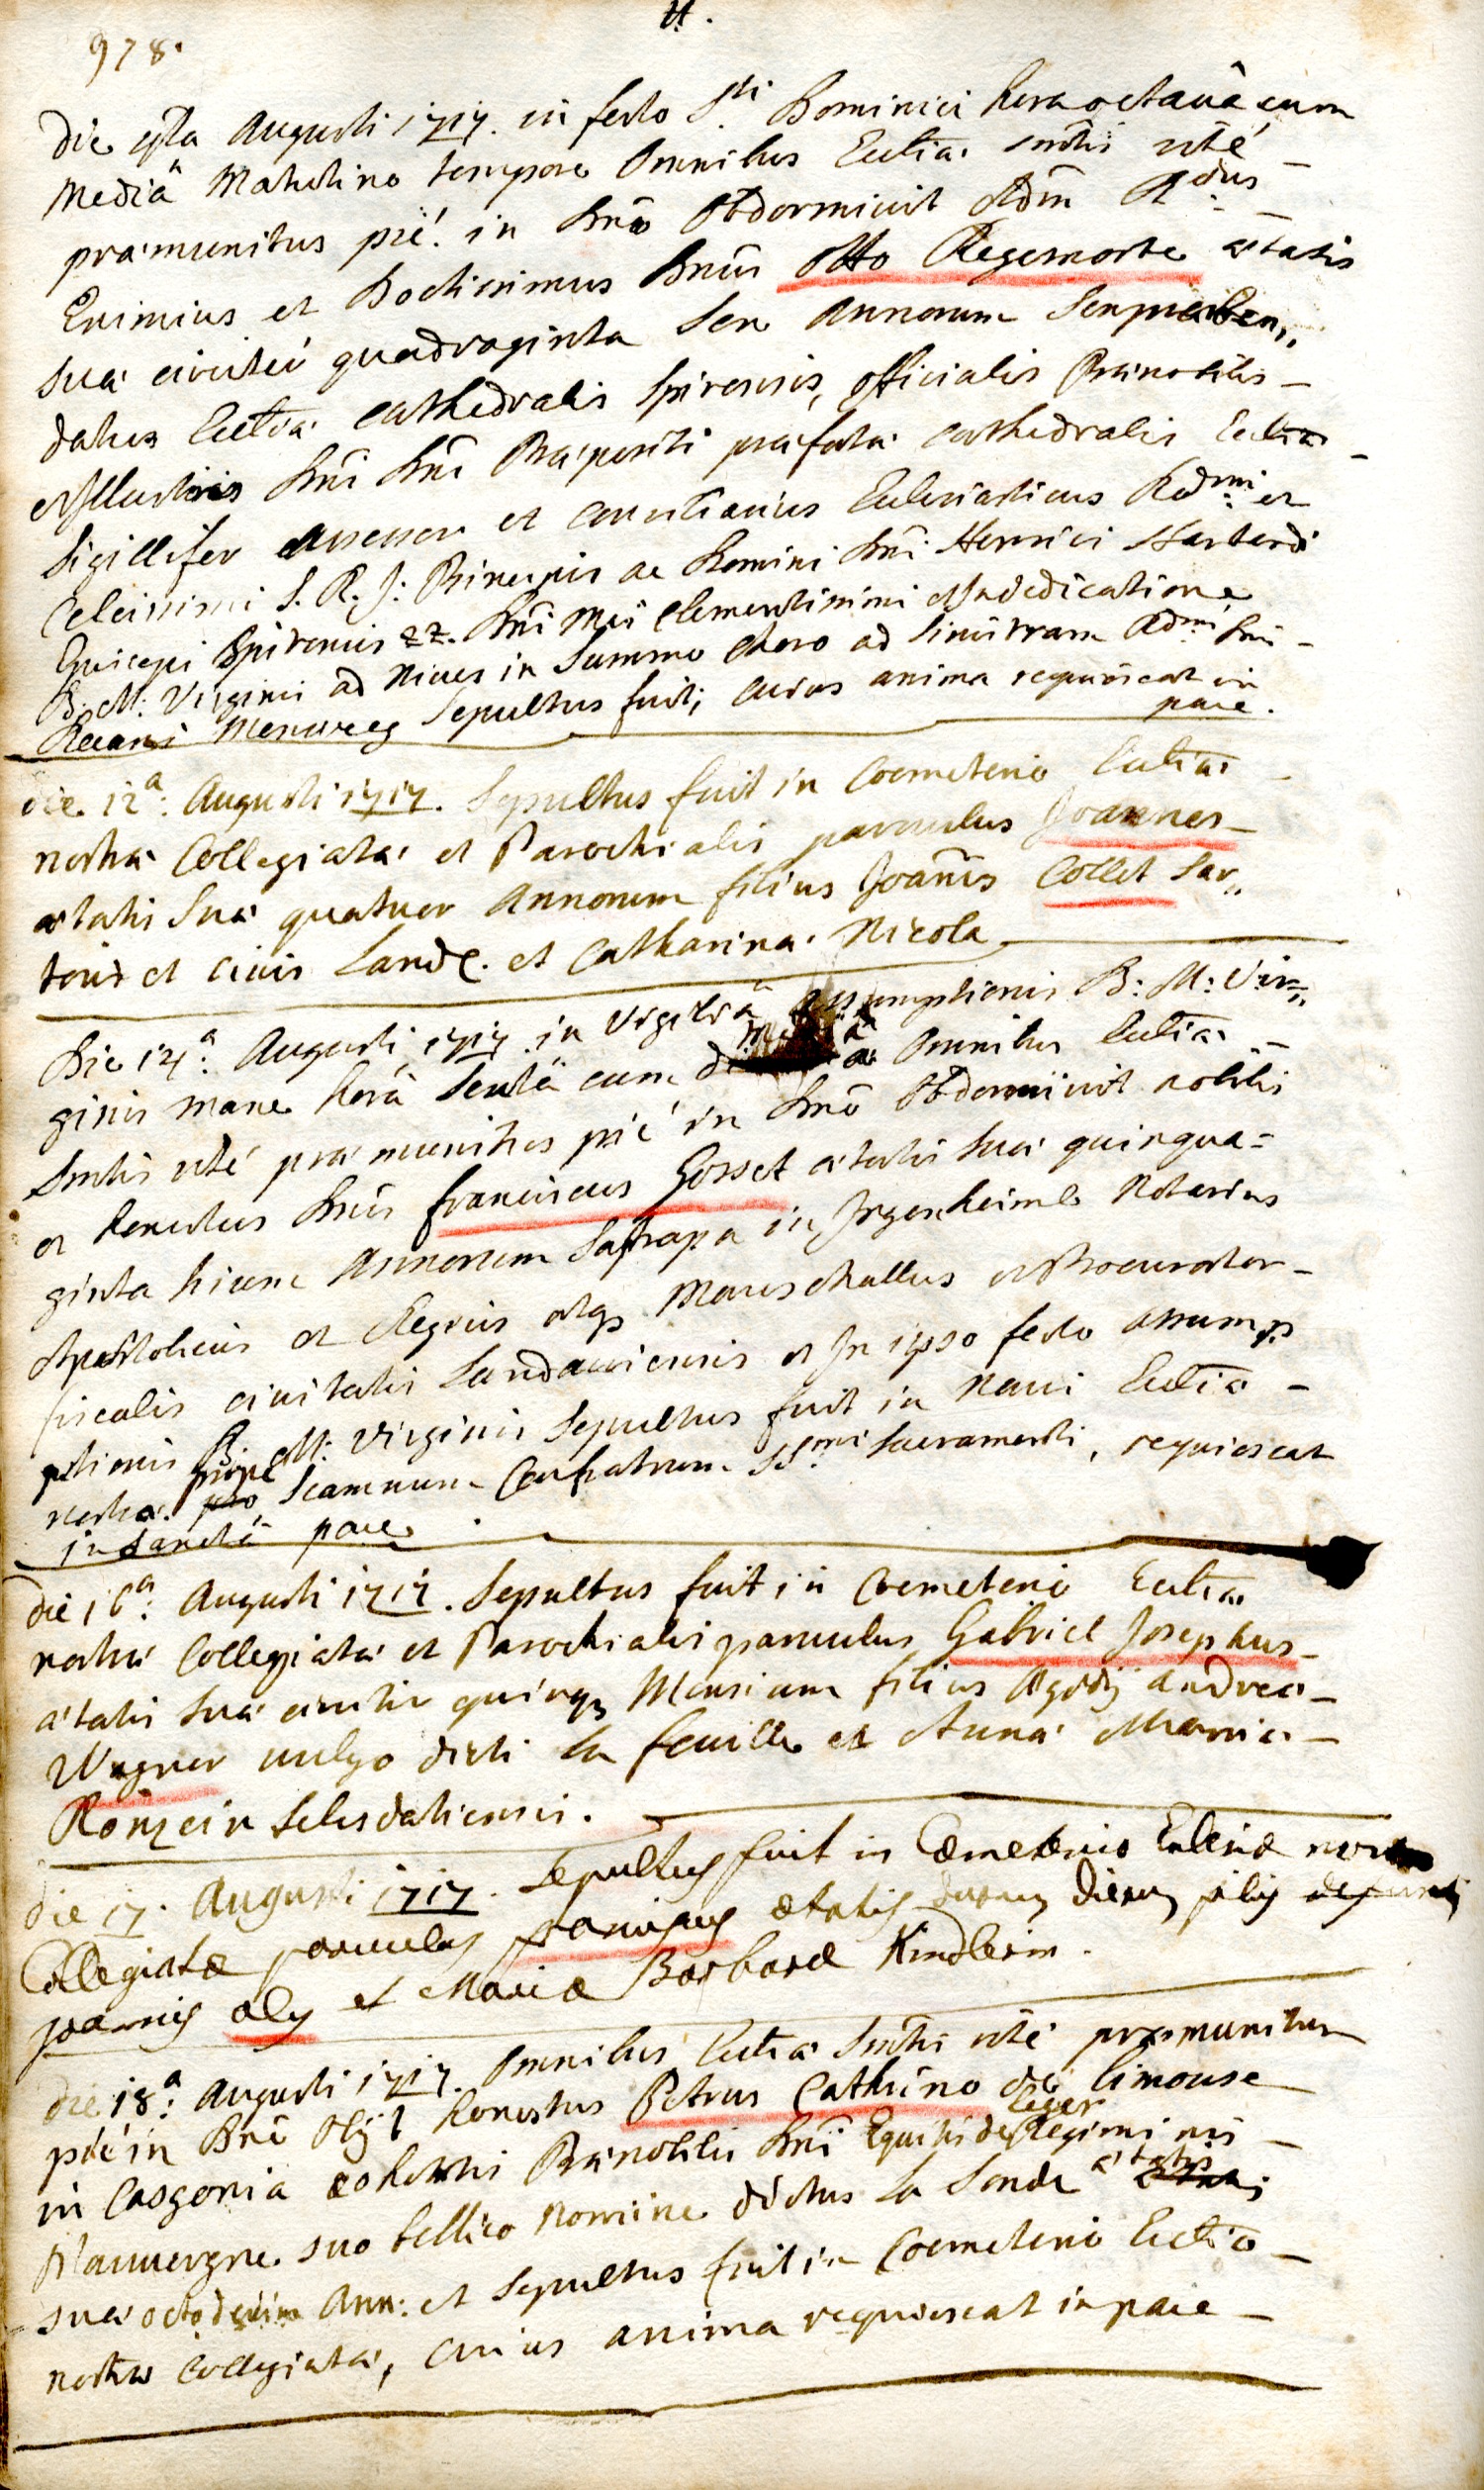 978.
H.
Die 4ta Augusti 1717. in festo Sti Dominici hora octavâ cum
mediâ Matutino tempore Omnibus Ecclia. Smtis rité
præmunitus pié in Dnō Obdormivit Adm Rdus
Eximius et Doctissimus Dnūs Otto Regemorte ætatis
suæ circiter quadraginta Sex Annorum Sexpræben„
datus Ecclia Cathedralis Spirensis, Officialis Prænobilis
et Illustris Dnī Dnī Præpositi præfatæ Cathedralis Eccliæ
Sigillifer Assessor et Consiliarius Ecclesiasticus Rdmi et
Celcissimi S. R. J. Principis ac Domini Dnī Henrici Hartardi
Episcopi Spirensis zz. Dnī Mei Clementissimi et In dedicatione
B. M. Virginis ad Nives in Summo Choro ad Sinistram Rdmi Dnī
Decani Menweg Sepultus fuit, cuius anima requiescat in
pace.
die 12a: Augusti 1717. Sepultus fuit in Coemeterio Eccliæ
nostræ Collegiatæ et Parochialis parvulus Joannes
ætatis suæ quatuor Annorum filius Joānis Collet Sar„
toris et civis Land. et Catharinæ Nicola
Die 14a: Augusti 1717. in Vigiliâ Assumptionis B: M: Vir„
ginis mane horâ Sextâ cum mediâ Omnibus Eccliæ
Smtis rité præmunitus pié in Dnō Obdormivit nobilis
et honestus Dnūs Franciscus Gosset ætatis suæ quinqua=
ginta hicem Annorum Satrapa in Ingenheimb Notarius
Apostolicus et Regius atq Mareschallus et Procurator
fiscalis civitatis Landaviensis et In ipso festo assump
ptionis B. M: Virginis Sepultus fuit in Navi Eccliæ
nostræ prope Scamnum Confratrum SSmi Sacramenti, requiescat
in sanctâ pace
die 16a: Augusti 1717. Sepultus fuit in Coemeterio Eccliæ
nostræ Collegiatæ et Parochialis parvulus Gabriel Josephus
ætatis suæ circiter quinq Mensium filius Ægidij Andreæ
Wagner vulgo dicti La feuille et Annæ Mariæ
Römzein Selesdatiensis.
die 17. Augusti 1717. Sepultus fuit in Cæmeterio Ecclesiæ nostræ
Collegiatæ parvulus franciscus ætatis duorum dierum filius defuncti
Joannis Aly et Mariæ Barbaræ Kindlerin.
die 18a: Augusti 1717. Omnibus Eccliæ Smtis rité præmunitus
pié in Dnō Obijt honestus Petrus Cathrino de Limouse
in Casgonia cohortis Prænobilis Dnī Equitis de Leger Regiminis
D'auvergne suo bellico Nomine dictus La Sonde ætatis
suæ octodecim Ann: et Sepultus fuit in Coemeterio Eccliæ
nostræ Collegiatæ, cuius anima requiescat in pace